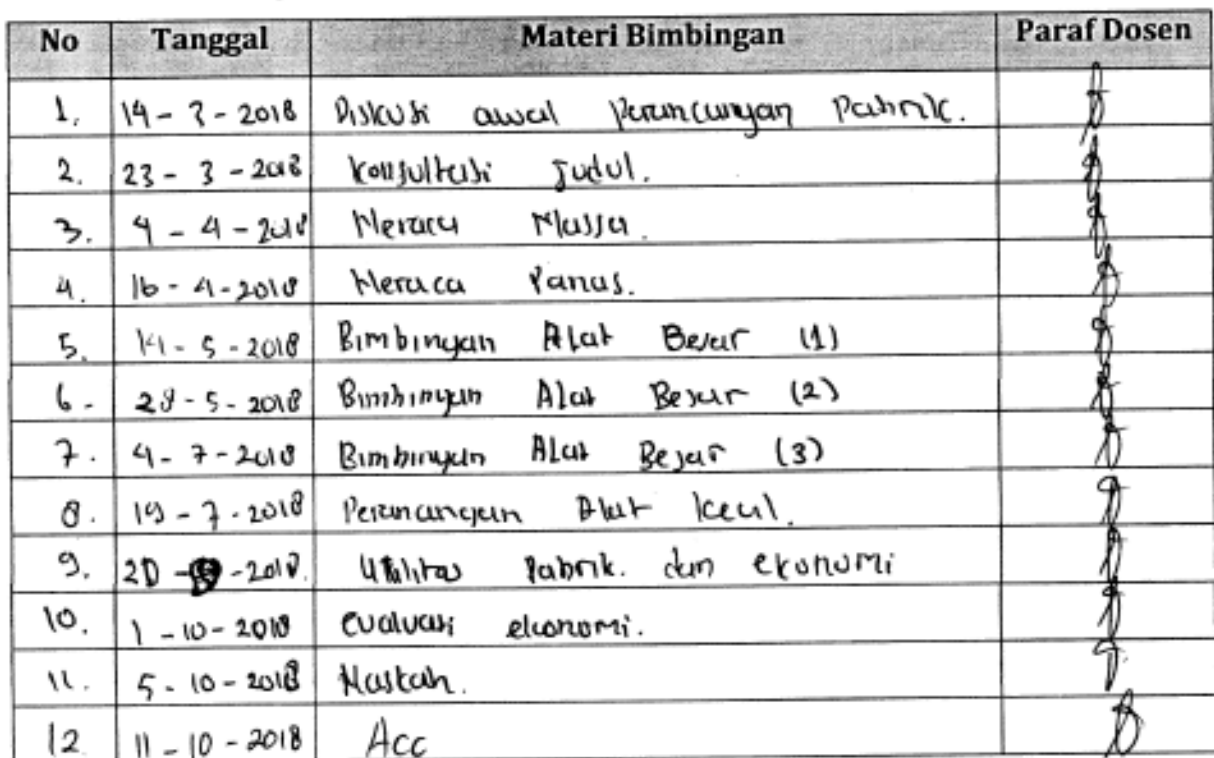 No Tanggal Materi Bimbingan Paraf Dosen
1. 19 - 3 - 2018 Diskusi awal Perancangan Pabrik.
2. 23 - 3 - 2018 Konsultasi Judul.
3. 4 - 4 - 2018 Neraca Massa.
4. 16 - 4 - 2018 Neraca Panas.
5. 14 - 5 - 2018 Bimbingan Alat Besar (1)
6 - 28 - 5 - 2018 Bimbingan Alat Besar (2)
7. 4 - 7 - 2018 Bimbingan Alat Besar (3)
8. 19 - 7 - 2018 Perancangan Alat kecil.
9. 20 - - 2018. Utilitas Pabrik. dan ekonomi
10. 1 - 10 - 2018 evaluasi ekonomi.
11. 5 - 10 - 2018 Naskah.
12 11 - 10 - 2018 Acc